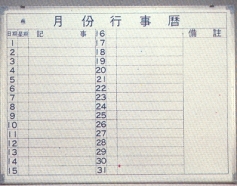 月份行事曆
日期 星期 記事 16 備註
1 17
2 18
3 19
4 20
5 21
6 22
7 23
8 24
9 25
10 26
11 27
12 28
13 29
14 30
15 31